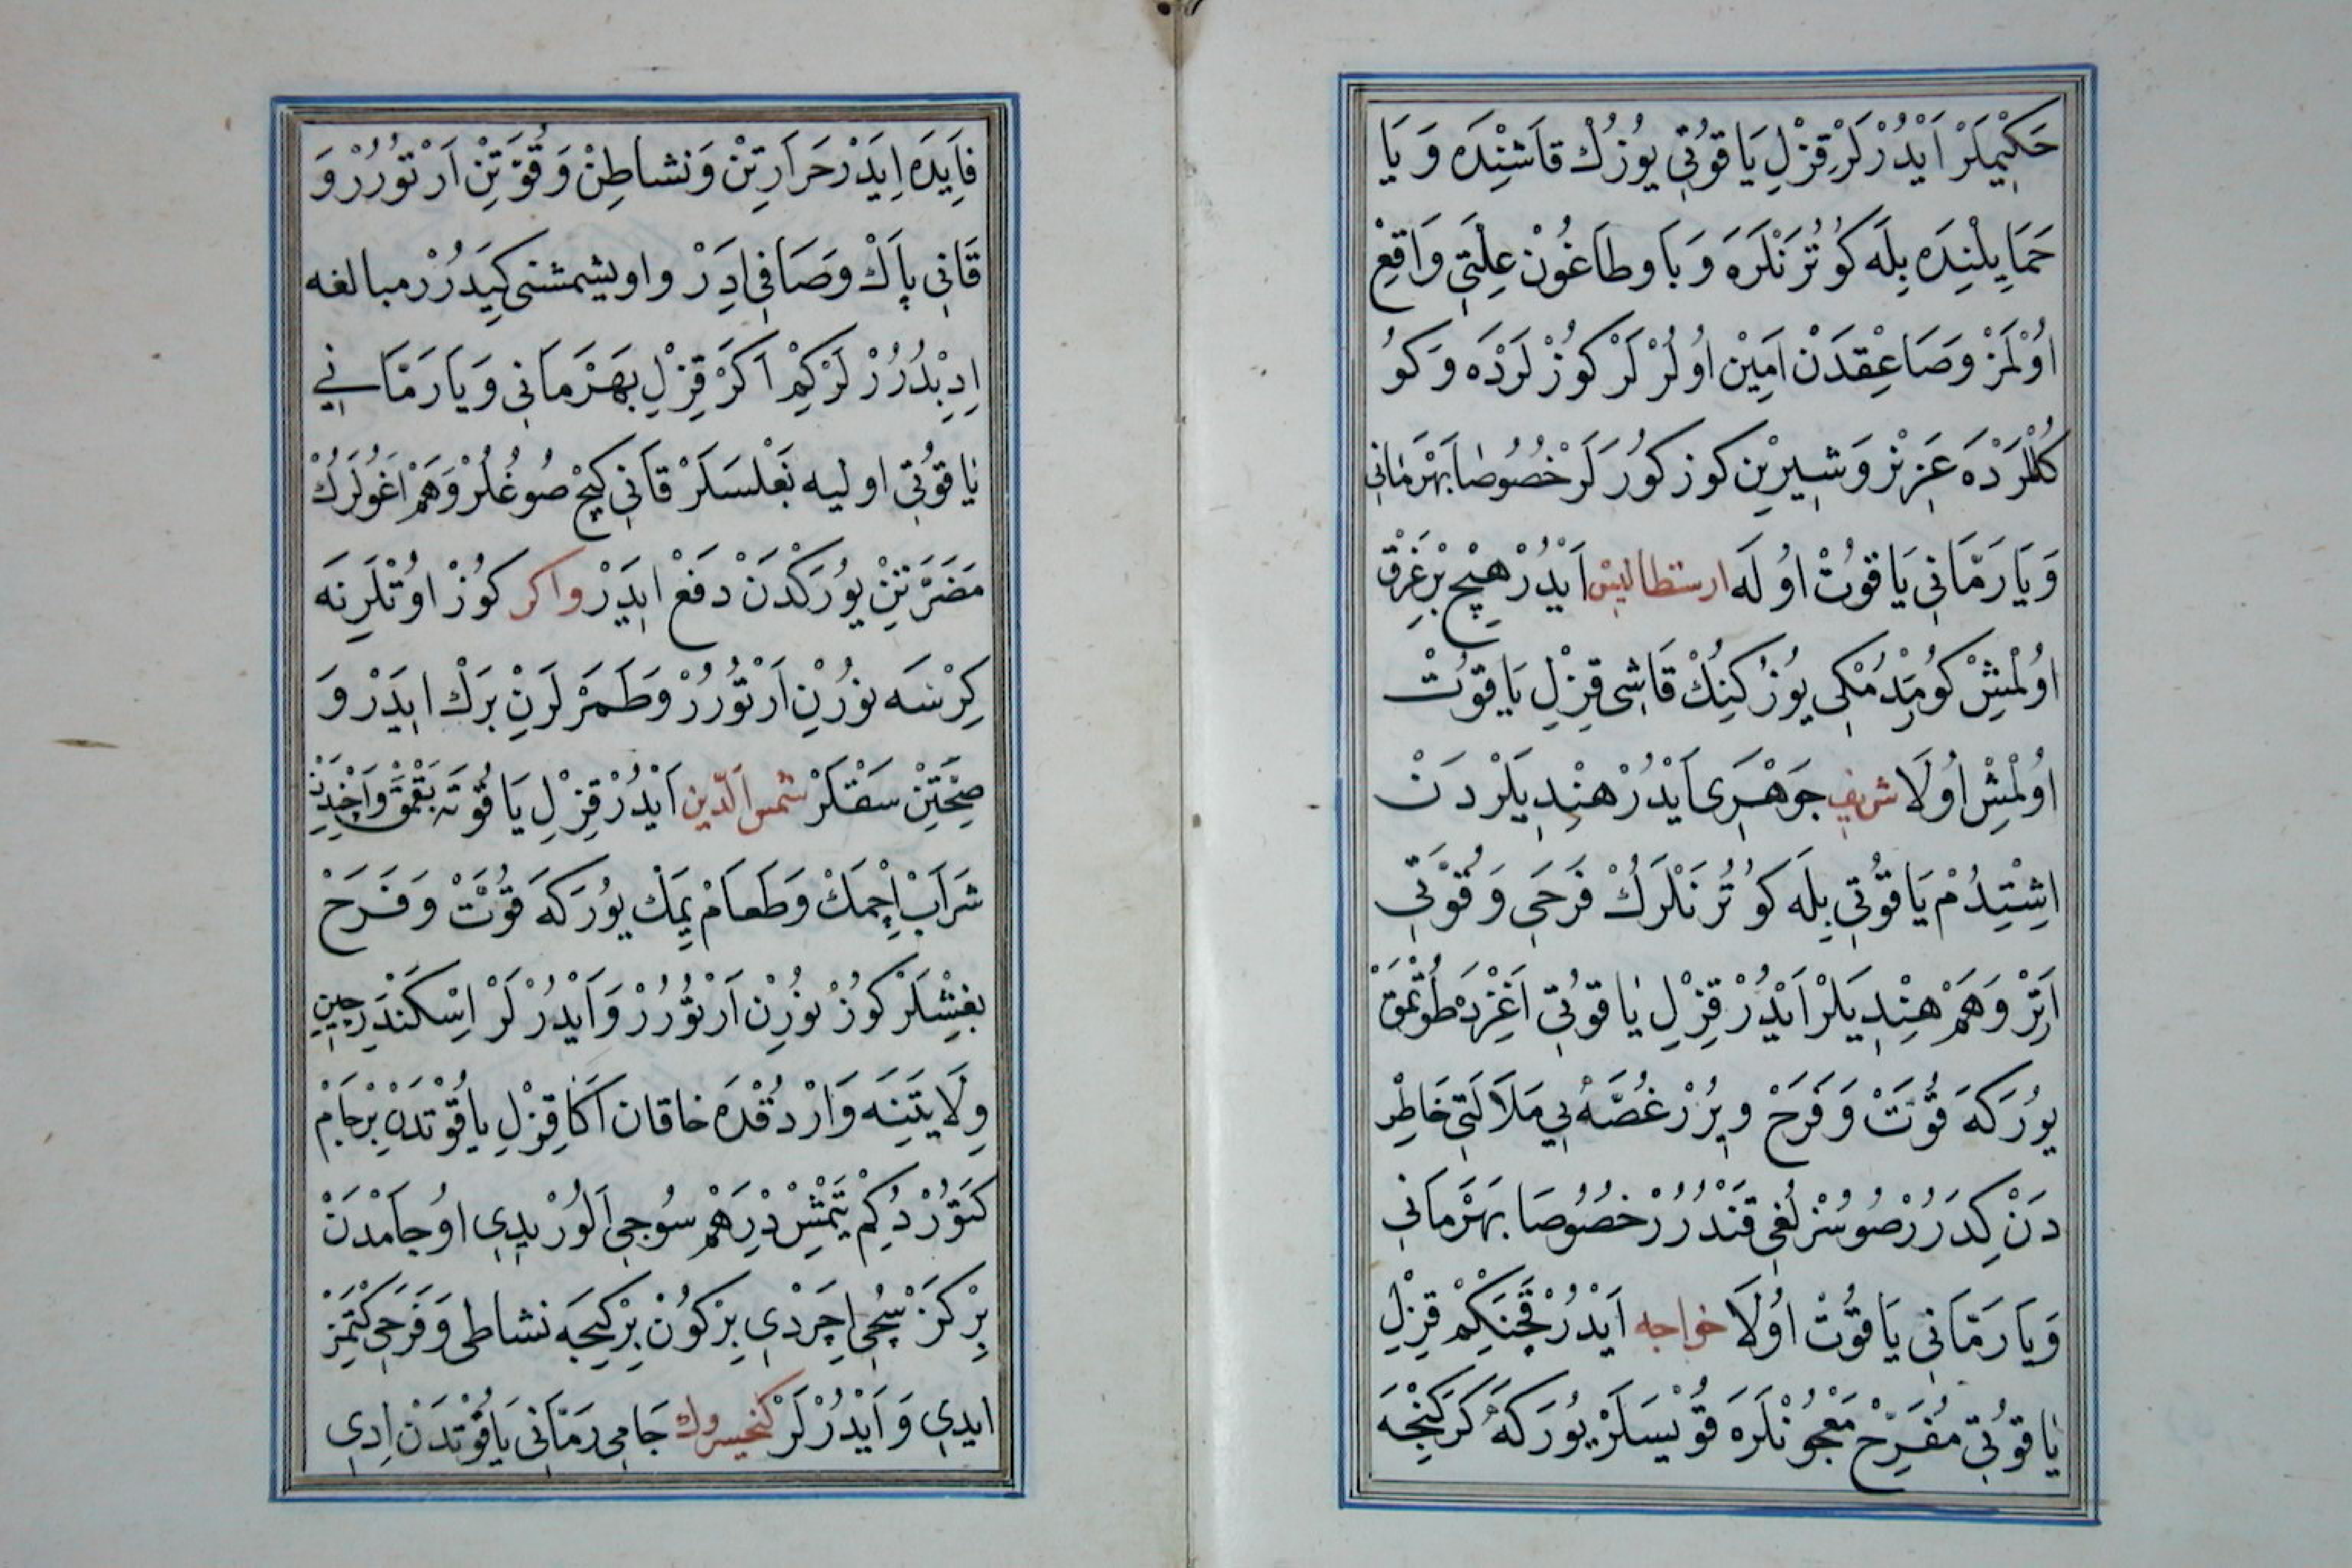 حَكِيْمْلَرْ اَيْدُرْلَرْ قِزْلِ يَاقُوتِي يُوزُكْ قَاشِنْدَه وَيَا
حَمَايِلْنِدَه بِلَه كُوتُرَنْلَرَه وَبَا وطَاعُونْ عِلَّتِي وَاقِعْ
اُوْلَمَزْ وَصَاعِقَدَنْ اَمِيْن اُولُرْلَرْ كُوزْلَرْدَه وَكُو
كُلْلَرْدَه عَزِيْز وَشِيرِيْن كوز كُورَرلَرْ خُصُوصَا بَهْرَمَانِي
وَيَا رَمَّانِي يَاقُوتْ اُولَه ارسطاليس اَيْدُرْ هِيچْ بِرْ غَرْق
اُولْمِشْ كُورْمَدُمْكِي يُوزُكِنِكْ قَاشِي قِزِلِ يَاقُوتْ
اُولْمِشْ اُولَا شريف جَوْهَرِي اَيْدُرْ هِنْدِيلَرْدَنْ
اِشِتِدُمْ يَاقُوتِي بِلَه كُوتُرَنْلَرُكْ فَرَحِي وَقُوَّتِي
اَرْتَرْ وَهَمْ هِنْدِيلَرْ اَيْدُرْ قِزِلِ يَاقُوتِي اَغِزْدَه طُوتْمَقْ
يُورَكَه قُوَّتْ وَفَرَحْ وِيرُرْ غُصَّهُ يِي مَلَالَتِي خَاطِرْ
دَنْ كِدَرُرْ صُوسُزْلُغِي قَنْدُرُرْ خصُوصَا بَهْرَمَانِي
وَيَا رَمَّانِي يَاقُوتْ اُولَا خواجه اَيْدُرْ قَچَنْكِمْ قِزِلِ
يَاقُوتِي مُفَرِّحْ مَعْجُونْلَرَه قُويْسَلَرْ يُورَكَهُ كَرَكِنْجَه
فَايِدَه اِيَدَرْ حَرَارَتِنْ وَنشاطِنْ وَقُوَّتِنْ اَرْتُورُرْ وَ
قَانِي پَاكْ وصَافِي اِدَرْ واويشمشنى كِيدَرُرْ مبالغه
اِدِبْدُرُرْلَرْكِمْ اَكَرْ قِزِلِ بَهْرَمَانِي وَيَا رَمَّانِي
يَاقُوتِي اوليه بَغْلسَلَرْ قَانِي كيچ صُوغُلُرْ وَهَمْ اَغُولَرُكْ
مَضَرَّتِنْ يُورَكْدَنْ دَفَعْ ايَدَرْ واكر كُوزْ اوُتْلَرِنَه
كِرْسَه نُورُنْ اَرْتُورُرْ وَطَمَرْلَرِنْ بَرَكْ ايَدَرْ وَ
صِحَّتِنْ سَقْلَرْ شمس الدين اَيْدُرْ قِزِلِ يَاقُوتَه بَقْمَقْ وَاَنْجِيلَيِنْ
شَرَابْ اِچْمَكْ وَطَعَامْ يِمَكْ يُورَكَه قُوَّتْ وَفَرَحْ
بغِشْلَرْ كُوزْ نُورِنْ اَرْتُورُرْ وَاَيْدُرْلَرْ اِسْكَنْدَرْ چِينْ
وِلَايَتِنَه وَارْدُقْدَه خاقان اَكَا قِزِلِ ياقُوتْدَنْ بِرْ جَامْ
كتوُرْدُكِمْ يَتْمِشْ دِرْهَمْ سُوجِي اَلُورْيِدِي اوُ جامْدَنْ
بِرْ كَزْ سُجِي اِچَرْدِي بِرْ كُونْ بِرْ كِيجَه نشاطى وَفَرَحِي كِتْمَزْ
ايدِي وَاَيْدُرْلَرْ كيخسروك جَامِي رَمّانِي يَاقُوتْدَنْ اِدِي